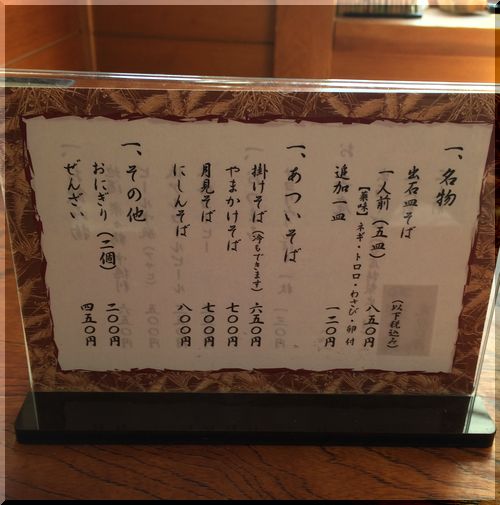 一、名物
出石皿そば
（以下税込み）
一人前（五皿） 八五〇円
【薬味】ネギ・トロロ・わさび・卵 付
追加一皿 一二〇円
一、あついそば
掛けそば（冷もできます） 六五〇円
やまかけそば 七〇〇円
月見そば 七〇〇円
にしんそば 八〇〇円
一、その他
おにぎり（二個） 二〇〇円
ぜんざい 四五〇円